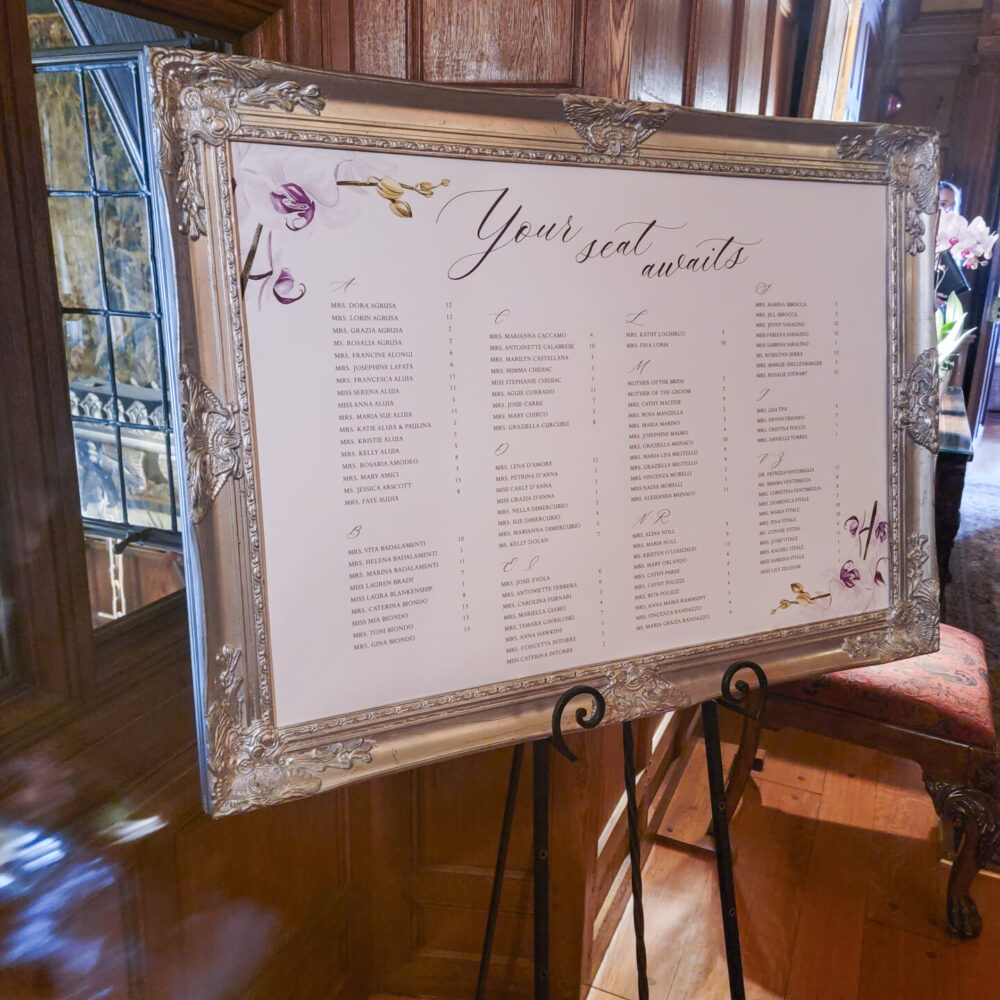 Your seat awaits
A
MRS. DORA AGRUSA 12
MRS. LORIN AGRUSA 12
MRS. GRAZIA AGRUSA 2
MS. ROSALIA AGRUSA 2
MRS. FRANCINE ALONGI 6
MRS. JOSEPHINE LAFATA 6
MRS. FRANCESCA ALUIA 11
MISS SERENA ALUIA 11
MISS ANNA ALUIA 5
MRS. MARIA SUE ALUIA 13
MRS. KATIE ALUIA & PAULINA 5
MRS. KRISTIE ALUIA 5
MRS. KELLY ALUIA 5
MRS. ROSARIA AMODEO 8
MRS. MARY AMICI 13
MS. JESSICA ARSCOTT 13
MRS. FAYE AUDIA 8
B
MRS. VITA BADALAMENTI 10
MRS. HELENA BADALAMENTI 11
MRS. MARINA BADALAMENTI 2
MISS LAUREN BRADY 1
MISS LAURA BLANKENSHIP 8
MRS. CATERINA BIONDO 13
MISS MIA BIONDO 13
MRS. TONI BIONDO 13
MRS. GINA BIONDO
C
MRS. MARIANNA CACCAMO 4
MRS. ANTOINETTE CALABRESE 10
MRS. MARILYN CASTALLANA 3
MRS. MIMMA CHIDIAC 2
MISS STEPHANIE CHIDIAC 1
MRS. AGGIE CORRADO 11
MRS. JOSIE CARRE 7
MRS. MARY CHIRCO 3
MRS. GRAZIELLA CURCURU 8
D
MRS. LENA D'AMORE 12
MRS. PETRINA D'ANNA 1
MISS CARLY D'ANNA 1
MISS GRAZIA D'ANNA 1
MRS. NELLA DIMERCURIO
MRS. SUE DIMERCURIO
MRS. MARIANNA DIMERCURIO
MS. KELLY DOLAN
E I
MRS. JOSIE EVOLA 6
MRS. ANTOINETTE FERRERA
MRS. CAROLINA FURNARI 2
MRS. MARIELLA GIAMO 4
MRS. TAMARA GAVRILOSKI
MRS. ANNA HAWKINS
MRS. CONCETTA INTORRE
MISS CATERINA INTORRE 2
L
MRS. KATHY LOCHIRCO 3
MRS. FINA LORIA 10
M
MOTHER OF THE BRIDE 2
MOTHER OF THE GROOM 2
MRS. CATHY MALTESE 9
MRS. ROSA MANZELLA 2
MRS. MARIA MARINO 4
MRS. JOSEPHINE MAURO 4
MRS. GRAZIELLA MUNACO 10
MRS. MARIA LISA MILITELLO 9
MRS. GRAZIELLA MILITELLO 9
MRS. VINCENZA MORELLI 2
MISS NADIA MORELLI 2
MRS. ALESSANDA MUNACO 11
N R
MRS. ALINA NOLL 9
MRS. MARIA NOLL 11
MS. KRISTEN O'LOUGHLIN
MRS. MARY ORLANDO
MRS. CATHY PARISI
MRS. CATHY POLIZZI
MRS. RITA POLIZZI
MRS. ANNA MARIA RAMMUNY
MRS. VINCENZA RANDAZZO 9
MS. MARIA GRAZIA RANDAZZO
S
MRS. MARINA SBROCCA
MRS. JILL SBROCCA
MRS. JENNY SARACINO 12
MISS FABIANA SARACINO 12
MISS SABRINA SARACINO
MS. ROSELYNN SERRA
MRS. MARGIE SHELLENBARGER
MRS. ROSALIE STEWART 11
T
MRS. LISA TINI
MRS. DEVON TRAINFO
MRS. CRISTINA TISCI
MRS. DANIELLE TORRES
V Z
DR. PATRIZIA VENTIMIGLIA
MS. MIMMA VENTIMIGLIA
MRS. CHRISTINA VENTIMIGLIA
MRS. DOMENICA VITALE
MRS. MARIA VITALE
MRS. PINA VITALE
MS. CONNIE VITITES
MRS. JOSIE VITALE
MRS. RACHEL VITALE
MISS SABRINA VITALE
MISS LILY ZELENAK